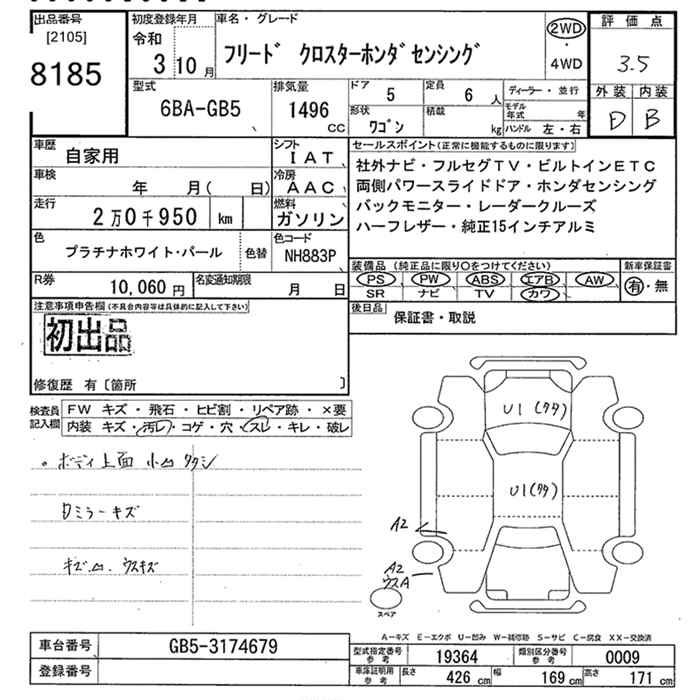 出品番号
[2105]
8185
初度登録年月
令和
3 10月
車名・グレード
フリード クロスターホンダセンシング
2WD
・
4WD
評価点
3.5
外装 内装
D B
型式
6BA-GB5
排気量
1496
cc
ドア 5
定員 6 人
形状
ワゴン
積載
kg
ディーラー・並行
モデル年式 年
ハンドル 左・右
車歴
自家用
シフト
IAT
車検
年 月( 日)
冷房
AAC
走行
2万0千950 km
燃料
ガソリン
色
プラチナホワイト・パール
色替
色コード
NH883P
R券
10,060円
名変通知期限
月 日
セールスポイント(正常に機能するものに限ります)
社外ナビ・フルセグTV・ビルトインETC
両側パワースライドドア・ホンダセンシング
バックモニター・レーダークルーズ
ハーフレザー・純正15インチアルミ
装備品(純正品に限り○をつけてください)
PS PW ABS エアB AW
SR ナビ TV カワ
新車保証書
有・無
後日品
保証書・取説
注意事項申告欄(不具合内容等は具体的に記入して下さい)
初出品
修復歴 有〔箇所 〕
検査員
記入欄
FW キズ・飛石・ヒビ割・リペア跡・×要
内装 キズ・汚レ・コゲ・穴・スレ・キレ・破レ
ボディ上面 小凹 タタシ
ミラーキズ
キズ 凹 ウスキズ
U1(タタ)
U1(タタ)
A2
A2
ウスA
スペア
A-キズ E-エクボ U-凹み W-補修跡 S-サビ C-腐食 XX-交換済
車台番号
GB5-3174679
登録番号
型式指定番号
参考
19364
類別区分番号
参考
0009
車庫証明用
参考
長さ 426 cm
幅 169 cm
高さ 171 cm